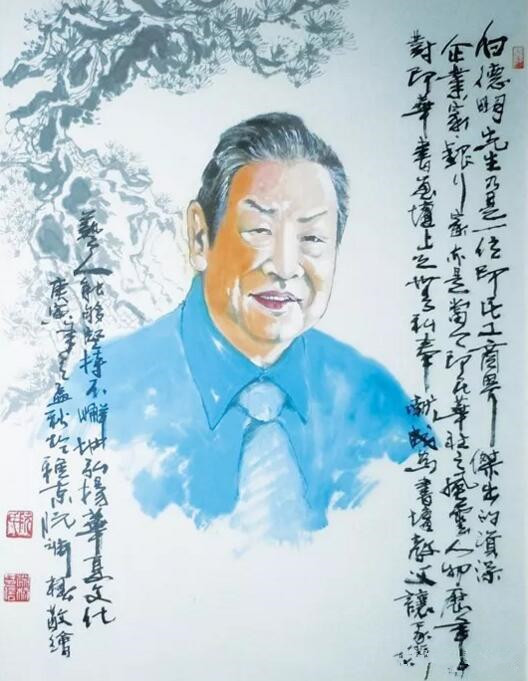 德明先生乃是一位印尼工商界傑出的資深
企業家銀行家亦是當今印尼華社之風雲人物歷年
對印華書畫壇上之無私奉獻成為書壇教父讓
藝人能夠堅持不懈地弘揚華夏文化
庚寅年之孟秋於雅京阮淵椿敬繪